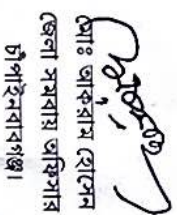 মোঃ আকরাম হোসেন
জেলা সমবায় অফিসার
চাঁপাইনবাবগঞ্জ।